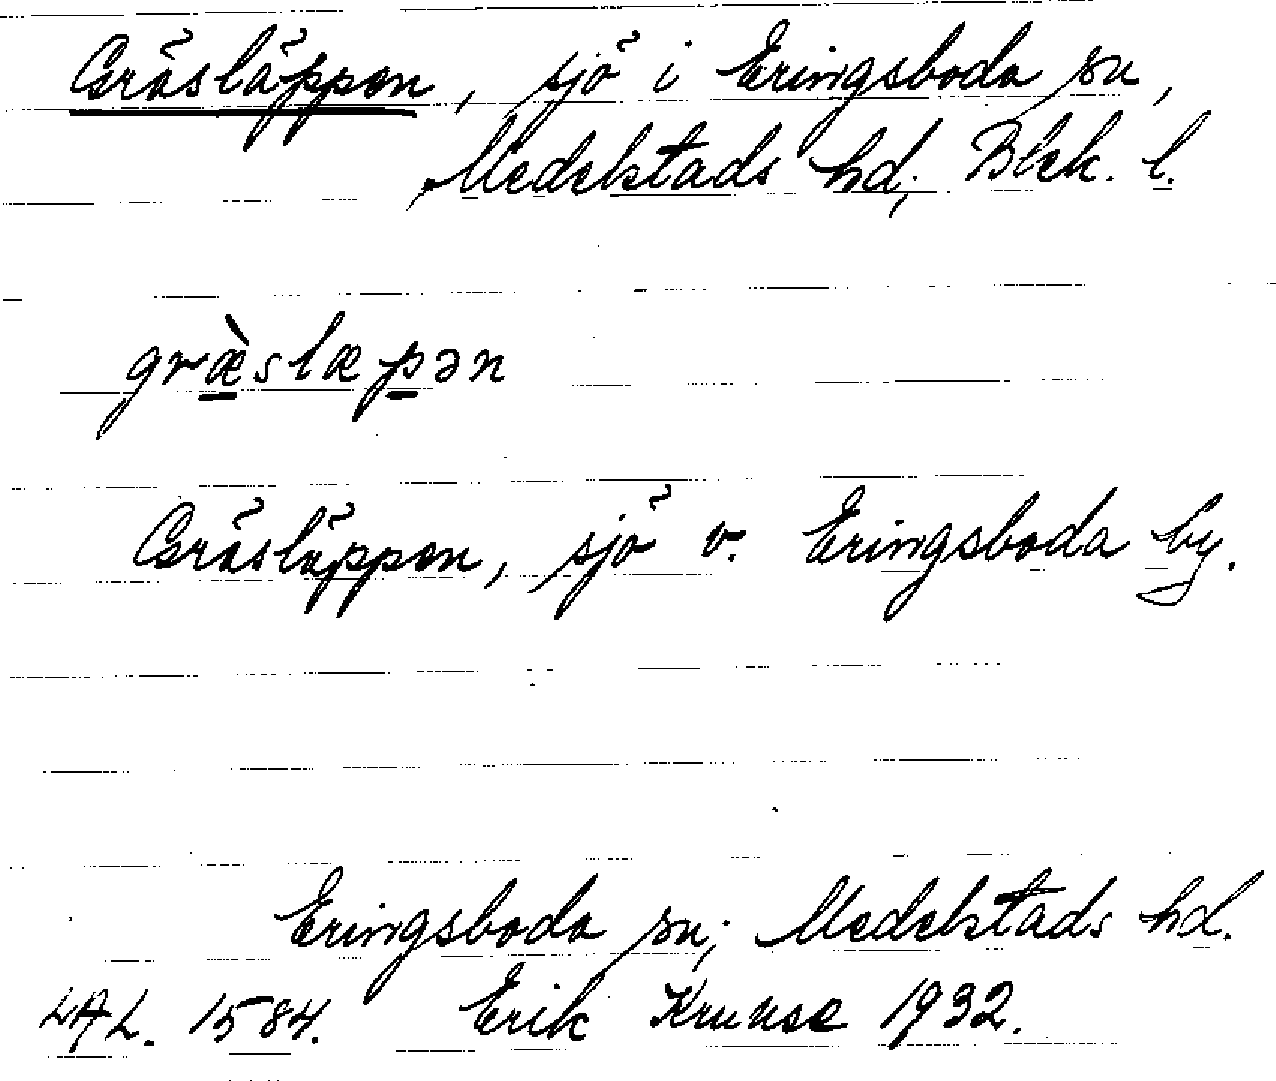 Gräsläppen, sjö i Eringsboda sn,
Medelstads hd, Blek. l.
græ̀slæpən
Gräsläppen, sjö v. Eringsboda by.
Eringsboda sn; Medelstads hd.
LAL. 1584. Erik Kruuse 1932.